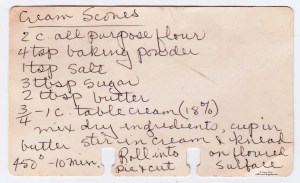 Cream Scones
2 c. all purpose flour
4 tsp baking powder
1 tsp salt
3 tbsp sugar
2 tbsp butter
3/4 - 1 c. table cream (18%)
mix dry ingredients, cup in
butter stir in cream & knead
450° - 10 min. Roll into pie & cut on floured surface